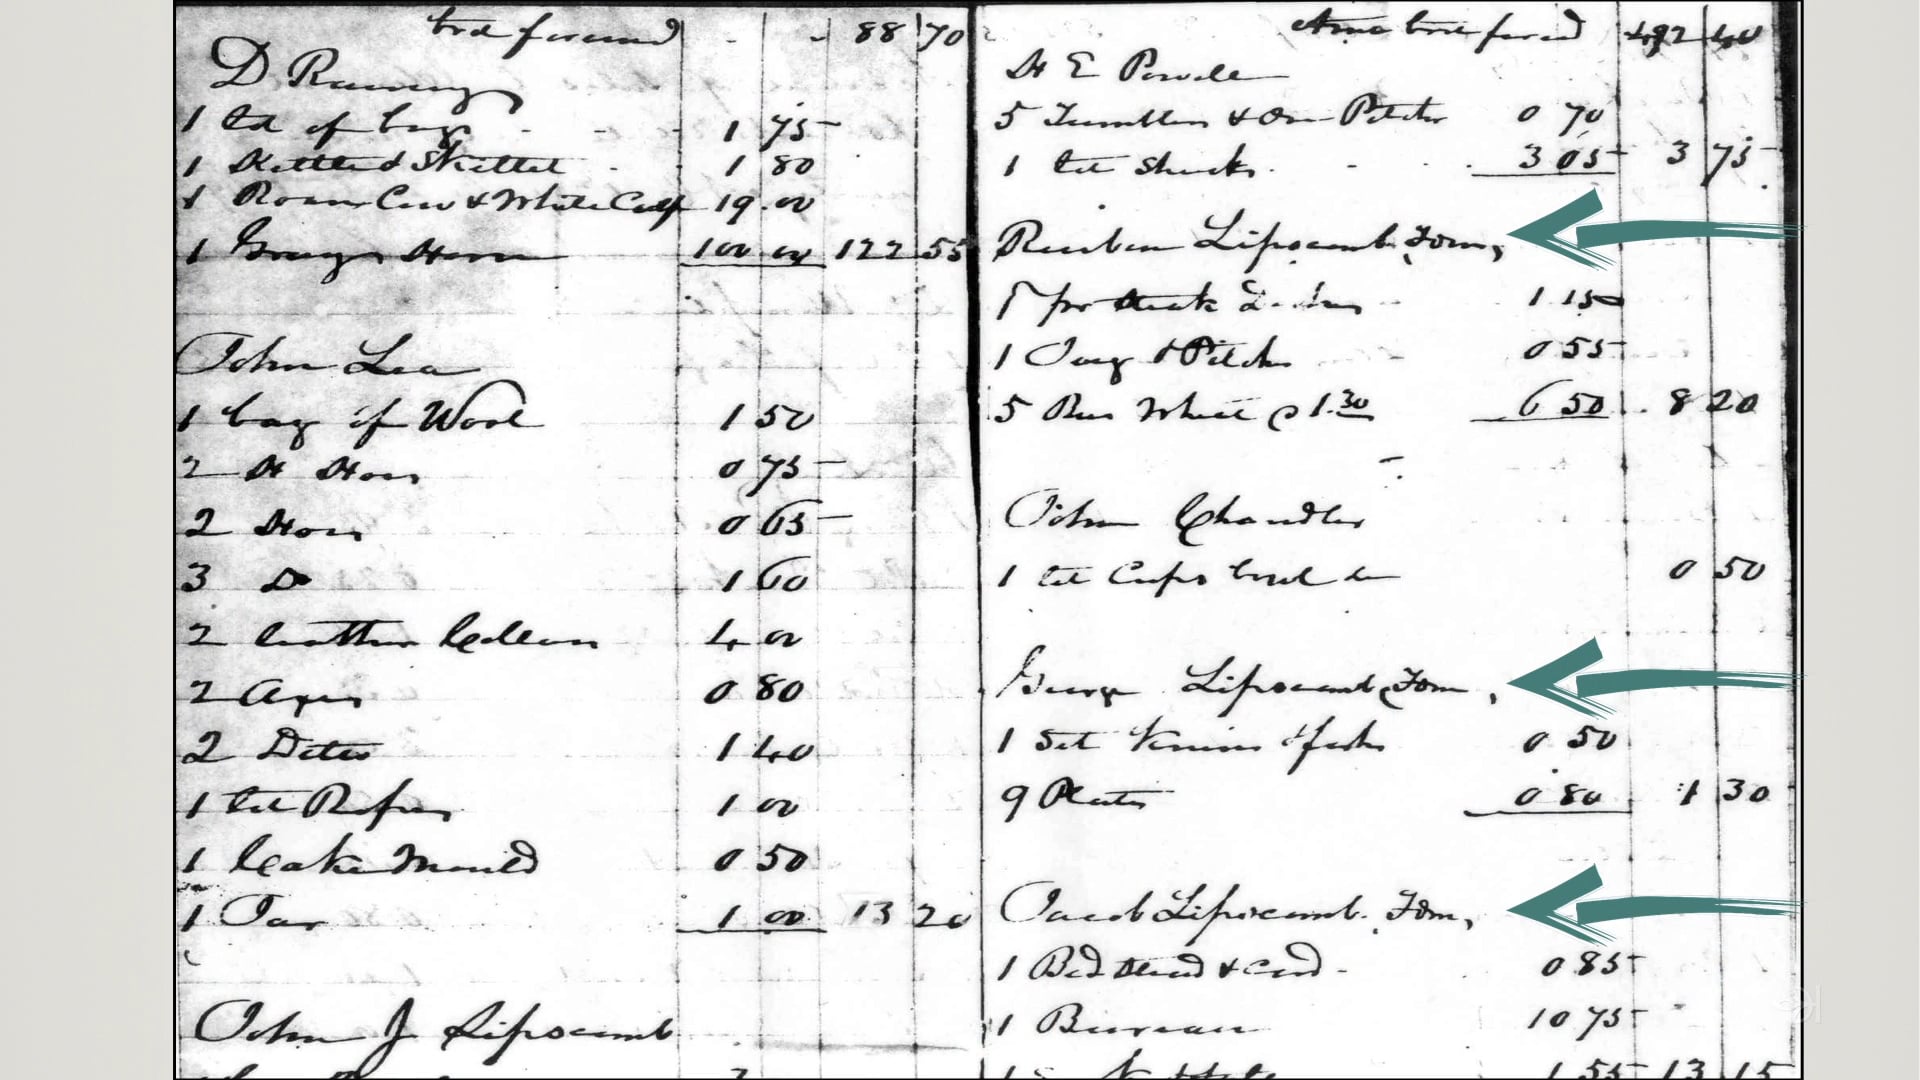 88 70
D Ramey
1 lot of bags 1 75
1 Kettle & Skillet 1 80
1 Roan Cow & White Calf 19.00
1 Gray Horse 100 00 122 55
John Lea
1 bag of Wool 1 50
2 H Hoes 0 75
2 Hoes 0 65
3 Do 1 60
2 Leather Collars 4 00
2 Axes 0 80
2 Ditto 1 40
1 lot 1 00
1 Cake Mould 0 50
1 Jar 1 00 13 20
John J Lipscomb
Amo brot forward 192 40
H E Powell
5 Tumblers & One Pitcher 0 70
1 lot Shucks 3 05 3 75
Reuben Lipscomb, Fom,
1 pr 1 15
1 Jug & Pitcher 0 55
5 Bus Wheat @ 1.30 6 50 8 20
John Chandler
1 lot Cups bowl 0 50
George Lipscomb, Fom,
1 Set Knives & forks 0 50
9 Plates 0 80 1 30
Jacob Lipscomb, Fom,
1 Bedstead & Cord 0 85
1 Bureau 10 75
1 55 13 15